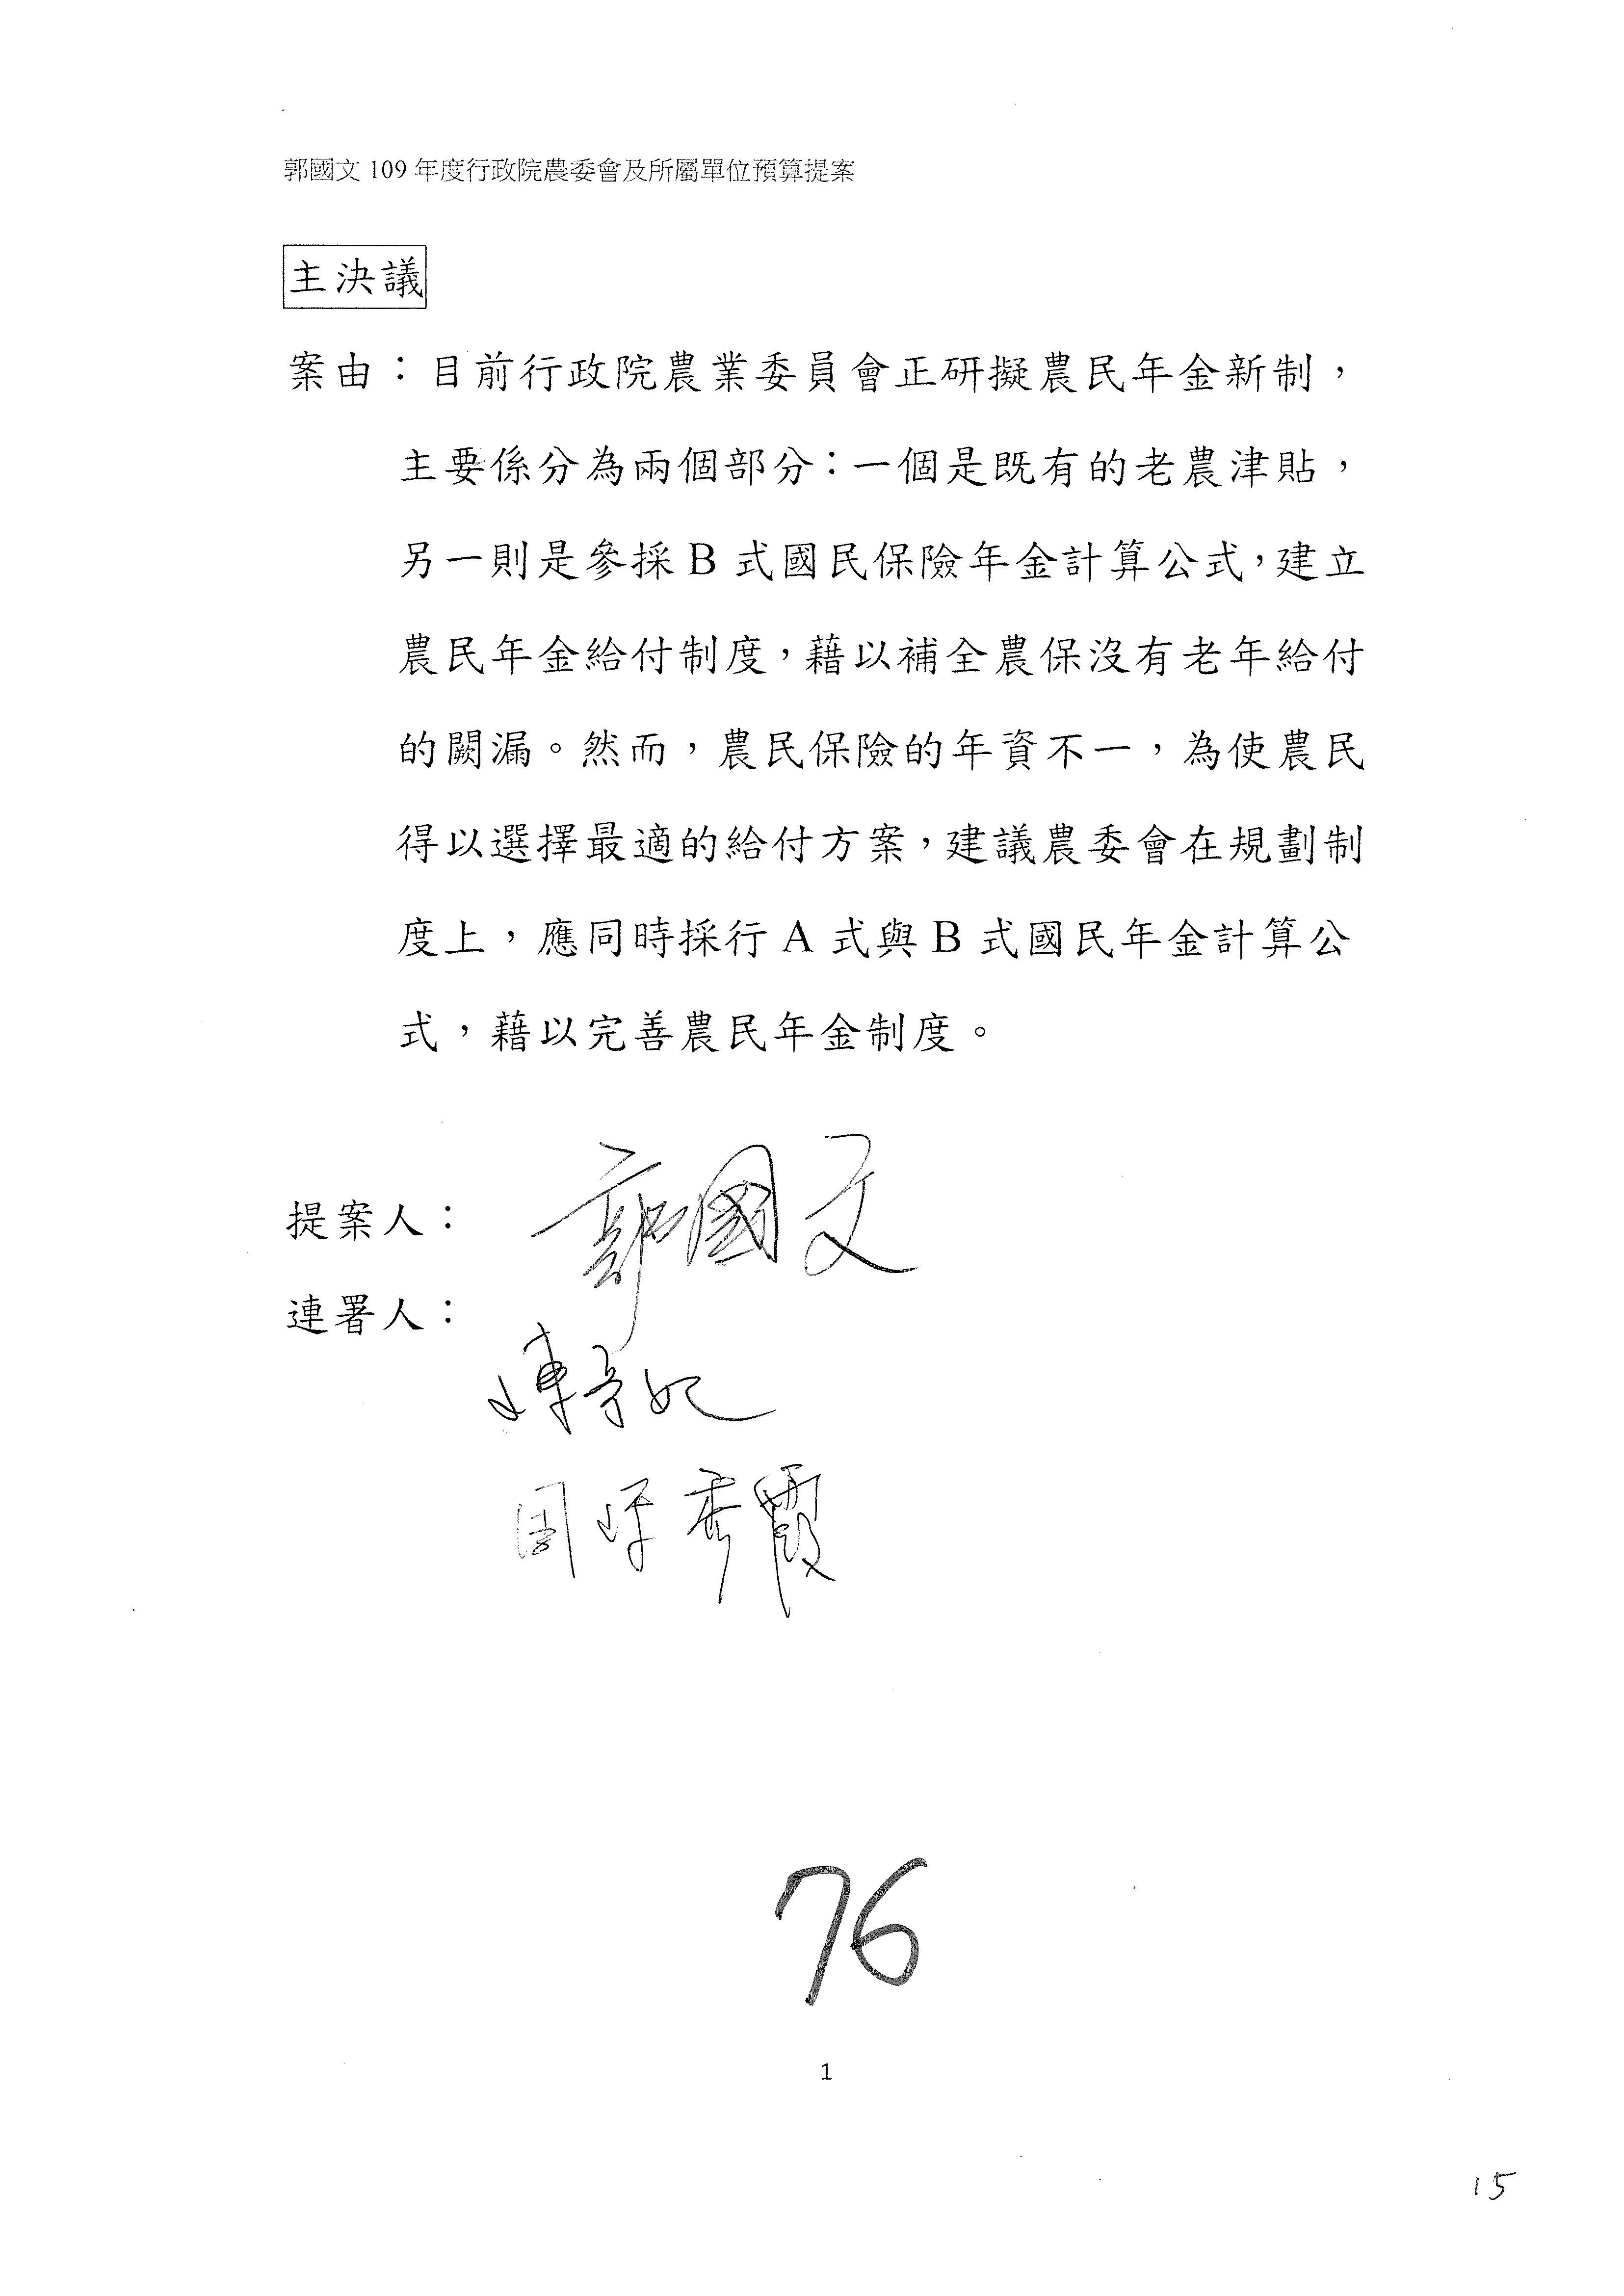 郭國文 109 年度行政院農委會及所屬單位預算提案
主決議
案由：目前行政院農業委員會正研擬農民年金新制，
主要係分為兩個部分：一個是既有的老農津貼，
另一則是參採 B 式國民保險年金計算公式，建立
農民年金給付制度，藉以補全農保沒有老年給付
的闕漏。然而，農民保險的年資不一，為使農民
得以選擇最適的給付方案，建議農委會在規劃制
度上，應同時採行 A 式與 B 式國民年金計算公
式，藉以完善農民年金制度。
提案人：郭國文
連署人：
陳亭妃
周陳秀霞
76
1
15